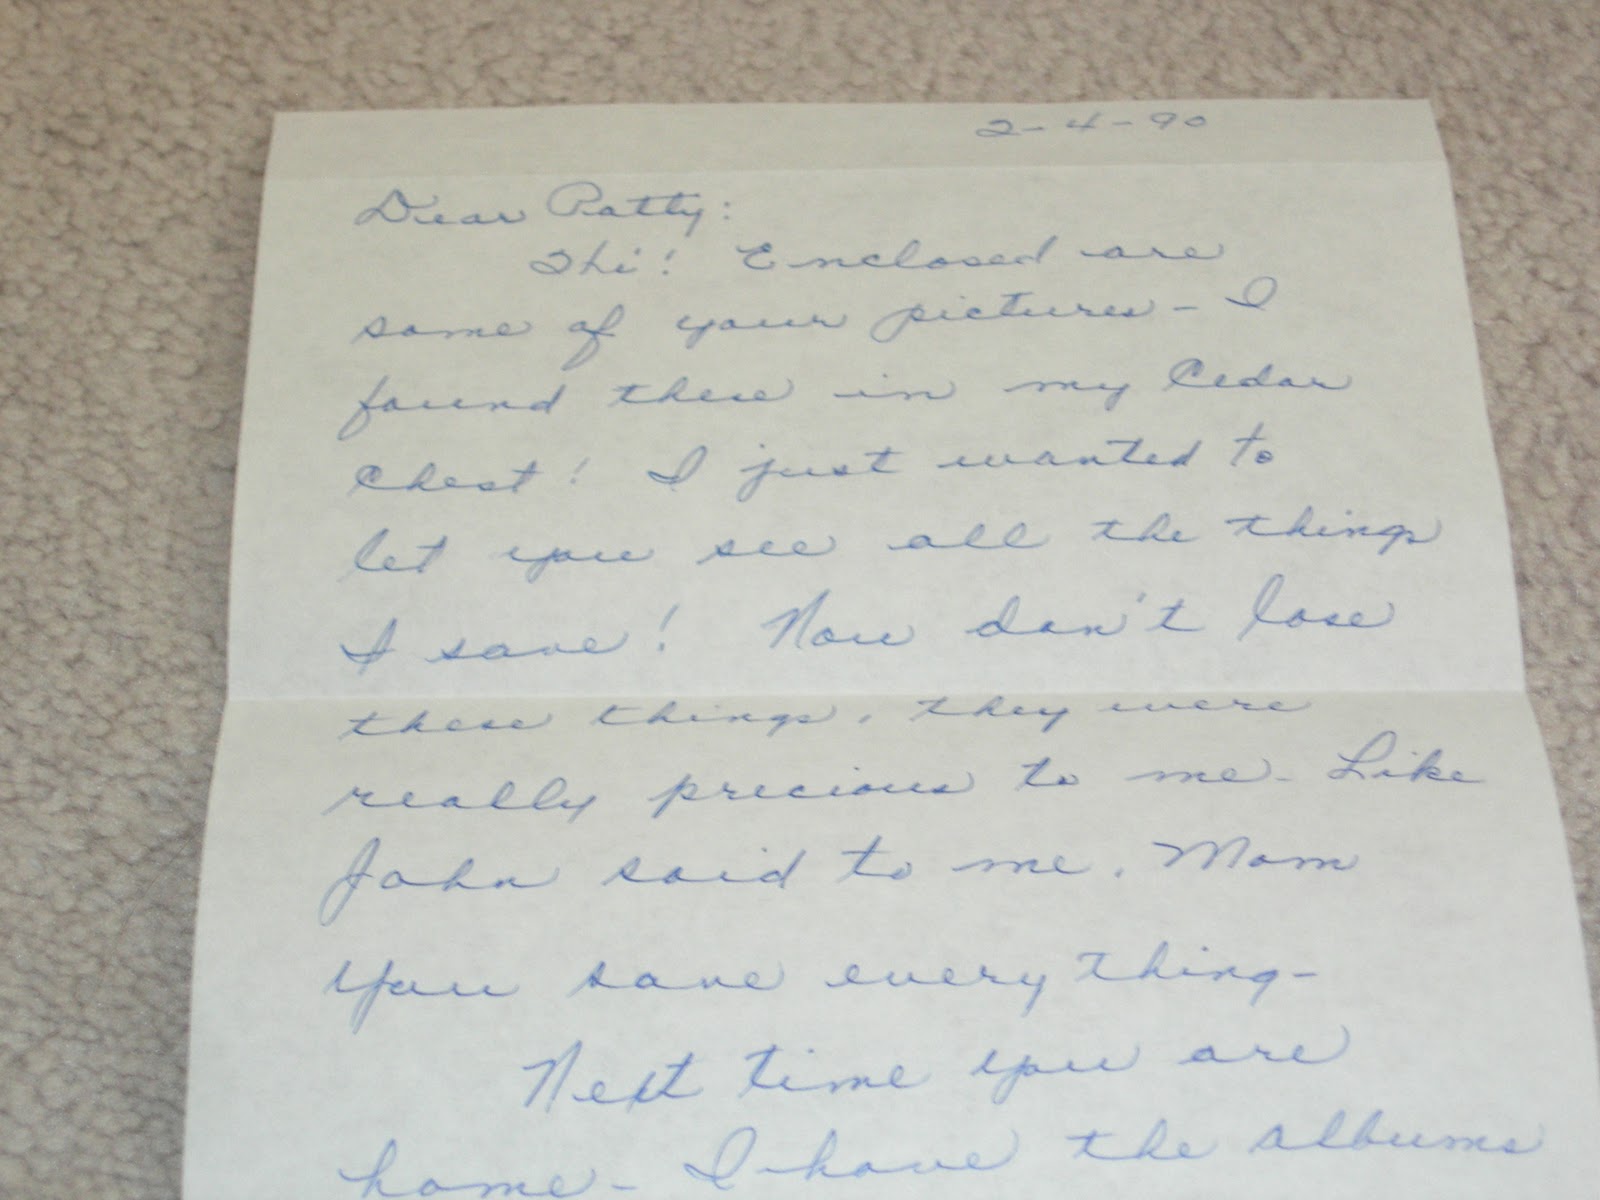 2-4-90
Dear Patty:
Hi! Enclosed are
some of your pictures - I
found these in my Cedar
Chest! I just wanted to
let you see all the things
I save! Now don't lose
these things, they were
really precious to me - Like
John said to me, Mom
you save every thing -
Next time you are
home - I have the albums